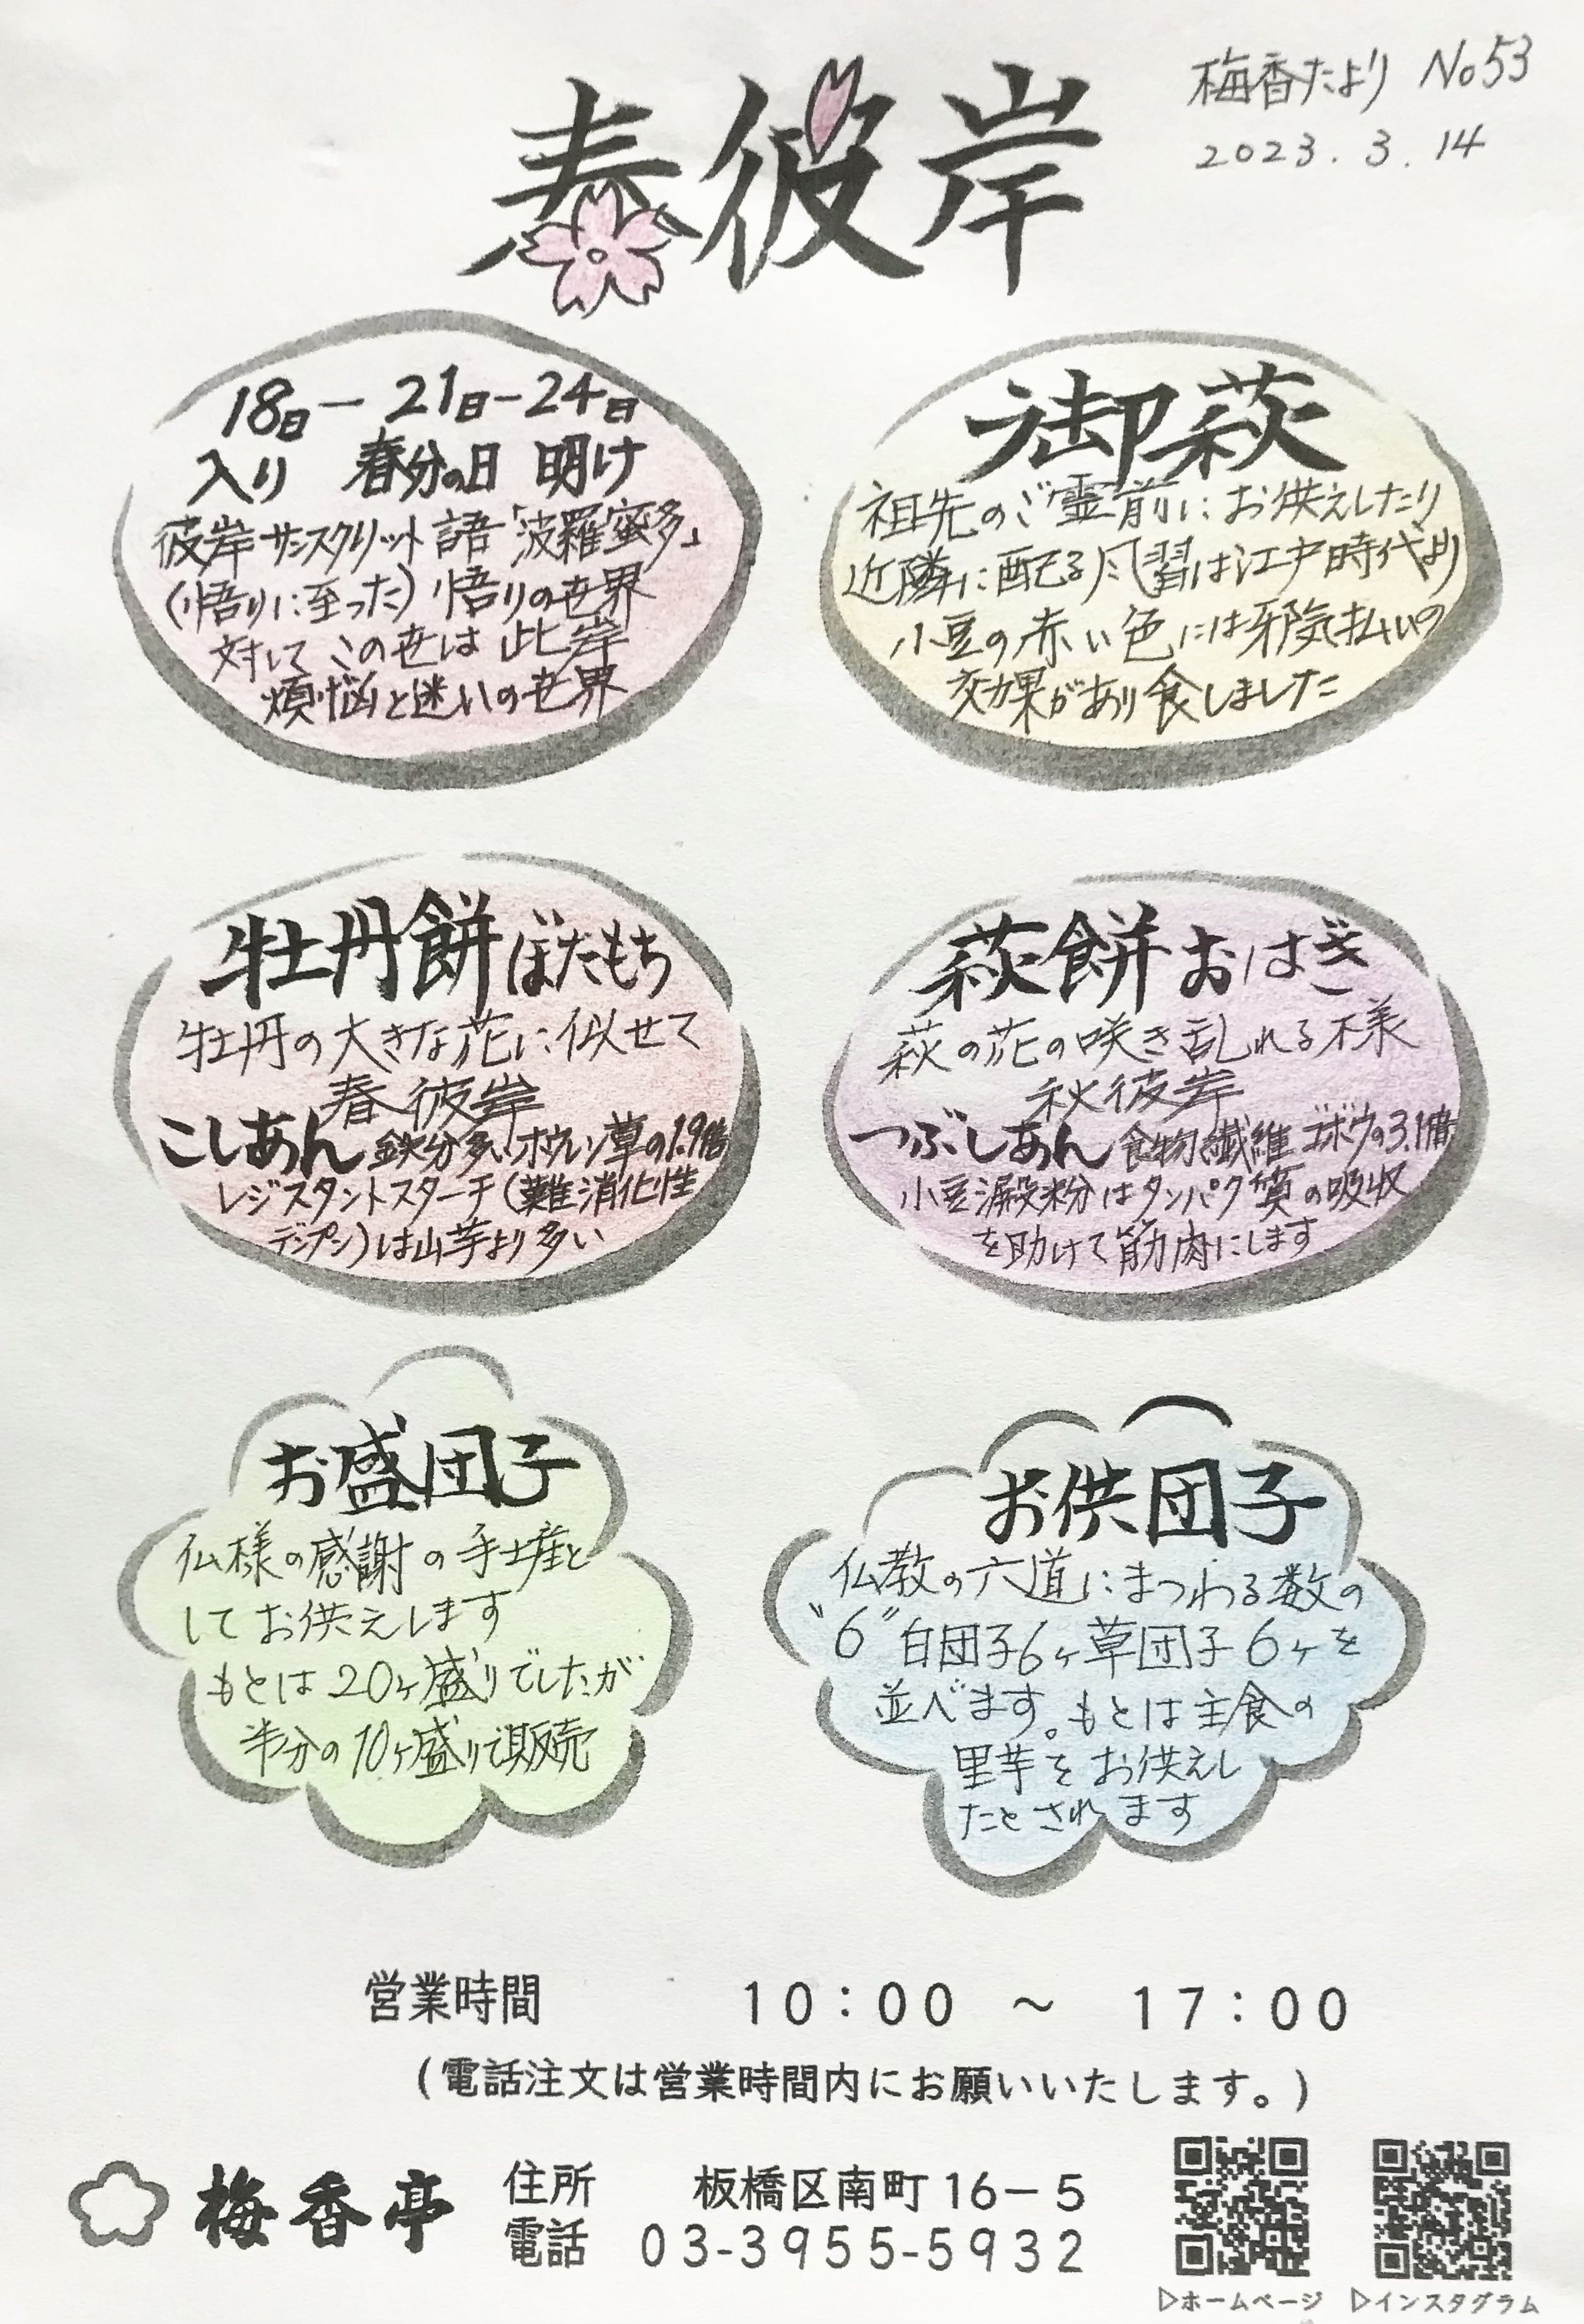 梅香だより No53
2023.3.14
春彼岸
18日－21日－24日
入り 春分の日 明け
彼岸サンスクリット語「波羅蜜多」
(悟りに至った)悟りの世界
対して この世は 此岸
煩悩と迷いの世界
御萩
祖先のご霊前に お供えしたり
近隣に配る風習は江戸時代より
小豆の赤い色には邪気払いの
効果があり食しました
牡丹餅 ぼたもち
牡丹の大きな花に似せて
春彼岸
こしあん 鉄分多い ホウレン草の1.9倍
レジスタントスターチ(難消化性
デンプン)は山芋より多い
萩餅 おはぎ
萩の花の咲き乱れる様
秋彼岸
つぶしあん 食物繊維 ゴボウの3.1倍
小豆澱粉はタンパク質の吸収
を助けて筋肉にします
お盛団子
仏様の感謝の手土産と
してお供えします
もとは20ヶ盛りでしたが
半分の10ヶ盛りで販売
お供団子
仏教の六道にまつわる数の
"6"白団子6ヶ草団子6ヶを
並べます。もとは主食の
里芋をお供えし
たとされます
営業時間 10:00 ～ 17:00
(電話注文は営業時間内にお願いいたします。)
梅香亭
住所 板橋区南町16－5
電話 03-3955-5932
▷ホームページ ▷インスタグラム